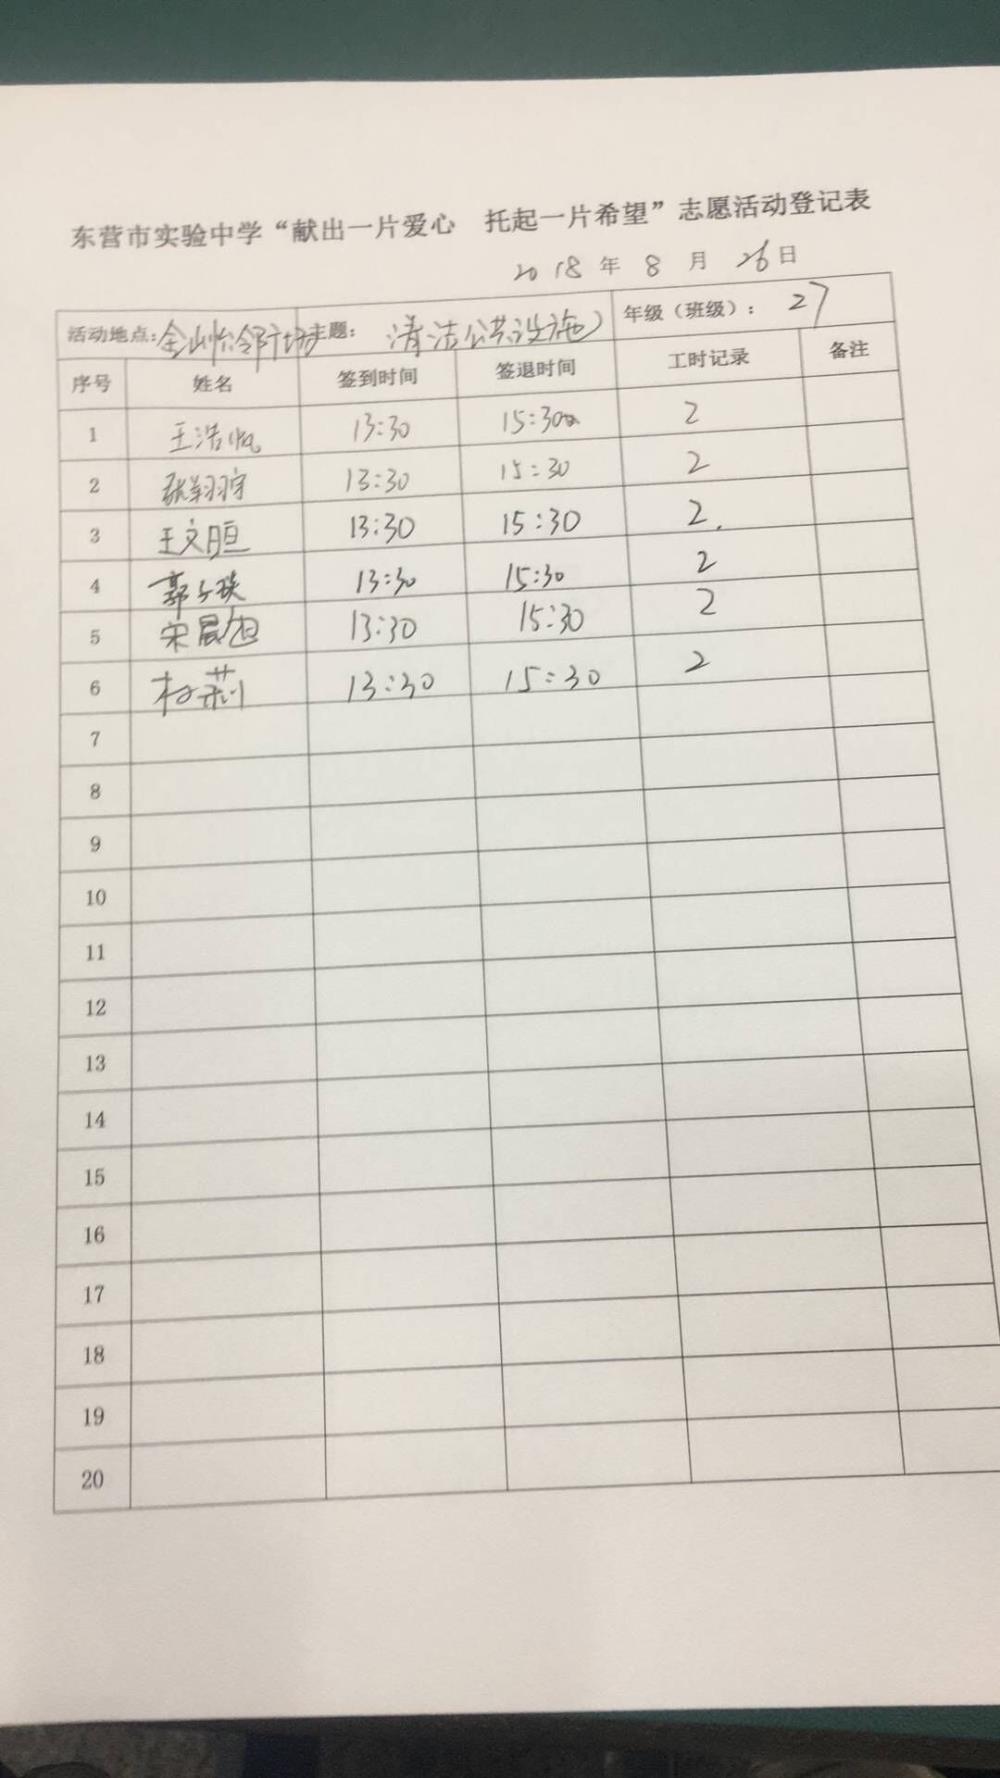 东营市实验中学“献出一片爱心 托起一片希望”志愿活动登记表
2018 年 8 月 26 日
活动地点: 主题: 清洁公共设施 年级（班级）: 27
序号 姓名 签到时间 签退时间 工时记录 备注
1 王浩帆 13:30 15:30 2
2 张翔宇 13:30 15:30 2
3 王文 13:30 15:30 2.
4 郭子瑛 13:30 15:30 2
5 宋晨旭 13:30 15:30 2
6 杜莉 13:30 15:30 2
7
8
9
10
11
12
13
14
15
16
17
18
19
20